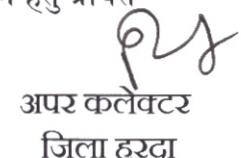 हेतु
अपर कलेक्टर
जिला हरदा